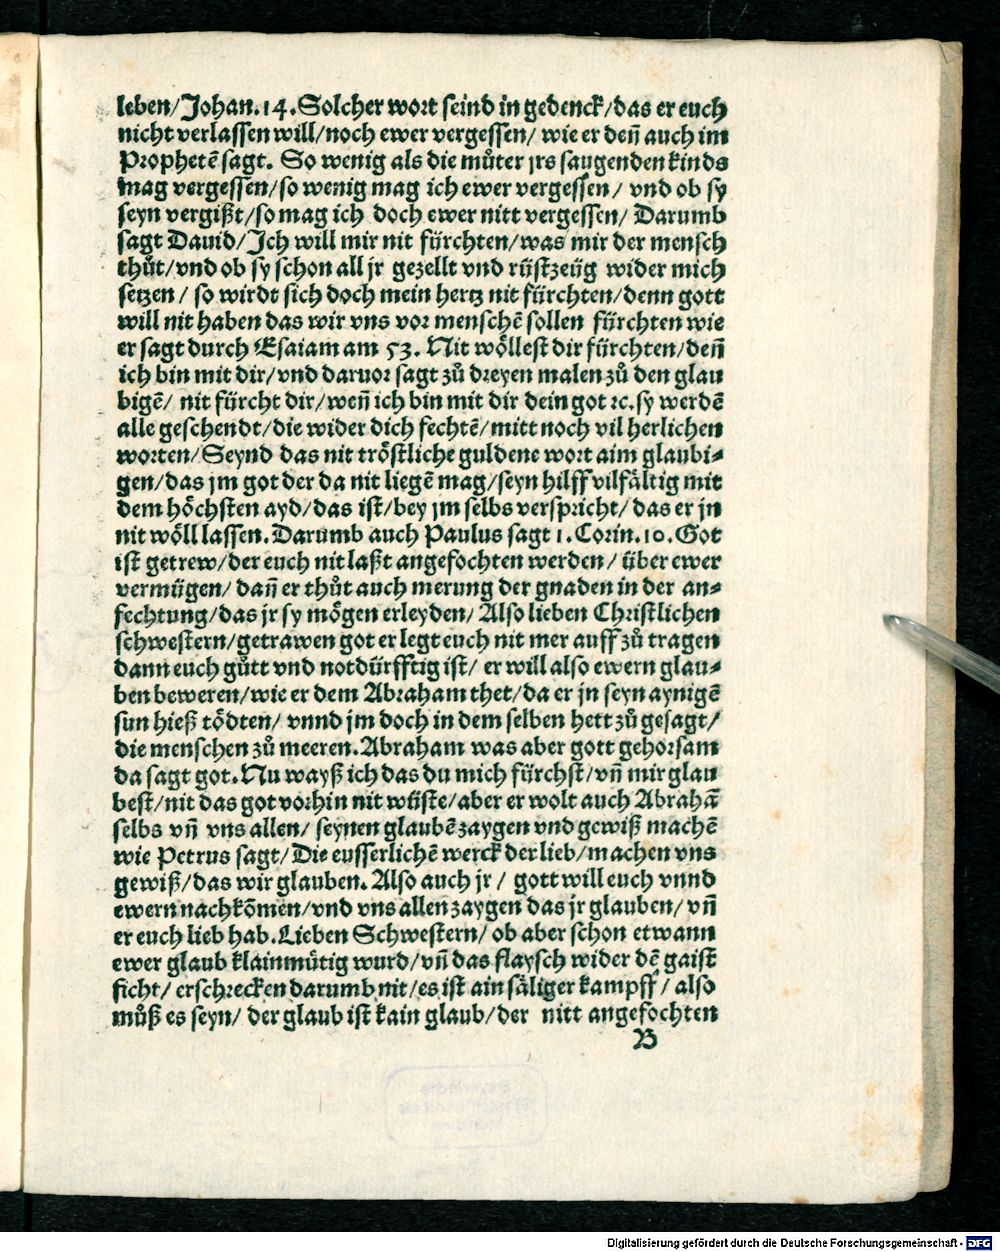 leben/Johan.14.Solcher wort seind in gedenck/das er euch
nicht verlassen will/noch ewer vergessen/ wie er deñ auch im
Prophetẽ sagt. So wenig als die můter jrs saugenden kinds
mag vergessen/so wenig mag ich ewer vergessen/ vnd ob sy
seyn vergißt/so mag ich doch ewer nitt vergessen/ Darumb
sagt Dauid/Ich will mir nit fürchten/was mir der mensch
thůt/vnd ob sy schon all jr gezellt vnd rüstzeüg wider mich
setzen/ so wirdt sich doch mein hertz nit fürchten/denn gott
will nit haben das wir vns vor menschẽ sollen fürchten wie
er sagt durch Esaiam am 53. Nit wöllest dir fürchten/deñ
ich bin mit dir/vnd daruor sagt zů dreyen malen zů den glau
bigẽ/ nit fürcht dir/weñ ich bin mit dir dein got ꝛc.sy werdẽ
alle geschendt/die wider dich fechtẽ/mitt noch vil herlichen
worten/Seynd das nit tröstliche guldene wort aim glaubi⸗
gen/das jm got der da nit liegẽ mag/seyn hilff vilfältig mit
dem höchsten ayd/das ist/bey jm selbs verspricht/das er jn
nit wöll lassen.Darumb auch Paulus sagt 1.Corin.10.Got
ist getrew/der euch nit laßt angefochten werden/ über ewer
vermügen/ dañ er thůt auch merung der gnaden in der an⸗
fechtung/das jr sy mögen erleyden/ Also lieben Christlichen
schwestern/getrawen got er legt euch nit mer auff zů tragen
dann euch gůtt vnd notdürfftig ist/ er will also ewern glau⸗
ben beweren/wie er dem Abraham thet/da er jn seyn aynigẽ
sun hieß tödten/ vnnd jm doch in dem selben hett zů gesagt/
die menschen zů meeren.Abraham was aber gott gehorsam
da sagt got.Nu wayß ich das du mich fürchst/vñ mir glau
best/nit das got vorhin nit wüste/aber er wolt auch Abrahã
selbs vñ vns allen/ seynen glaubẽ zaygen vnd gewiß machẽ
wie Petrus sagt/Die eusserlichẽ werck der lieb/machen vns
gewiß/das wir glauben. Also auch jr/ gott will euch vnnd
ewern nachkõmen/vnd vns allen zaygen das jr glauben/ vñ
er euch lieb hab.Lieben Schwestern/ ob aber schon etwann
ewer glaub klainmütig wurd/vñ das flaysch wider dẽ gaist
ficht/ erschrecken darumb nit/es ist ain säliger kampff/ also
můß es seyn/ der glaub ist kain glaub/der nitt angefochten
B
Digitalisierung gefördert durch die Deutsche Forschungsgemeinschaft - DFG